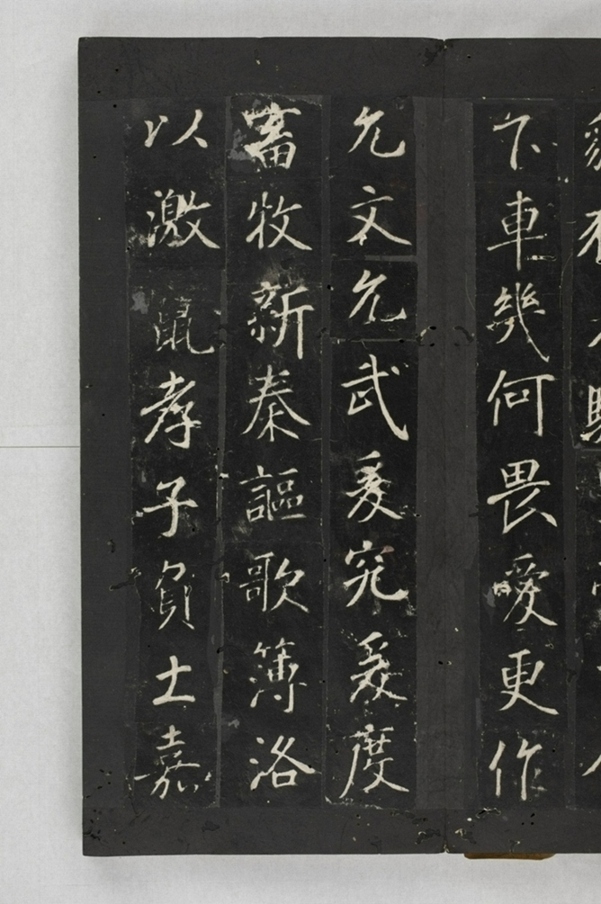 下車幾何畏愛更作
允文允武爰究爰度
畜牧新秦謳歌簿洛
以激鼠孝子負士嘉